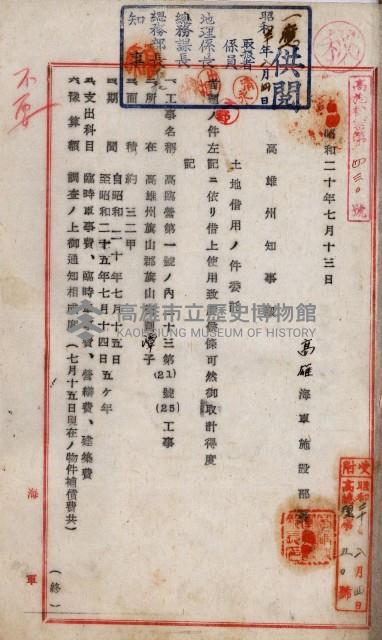 高施機密第四三〇號
昭和二十年七月十三日
高雄海軍施設部
高雄州知事殿
土地借用ノ件委託
首題ノ件左記ニ依リ借上使用致度條可然御取計得度
記
一、工事名稱 高臨營第一號ノ內第十三第(21)號(25)工事
二、所在 高雄州旗山郡旗山
三、面積 約三二甲
四、期間 自昭和二十年七月十五日
至昭和二十五年七月十四日五ケ年
五、支出科目 臨時軍事費、臨時軍事費、營繕費、建築費
六、豫算額 調查ノ上御通知相成度(七月十五日現在ノ物件補償費共)
(終)
海軍
供閱
昭和年八月四日
取扱者
係員
地理係長
總務課長
總務部長
知事
不要
受昭和二十年八月四日
附高
高雄市立歷史博物館
KAOHSIUNG MUSEUM OF HISTORY